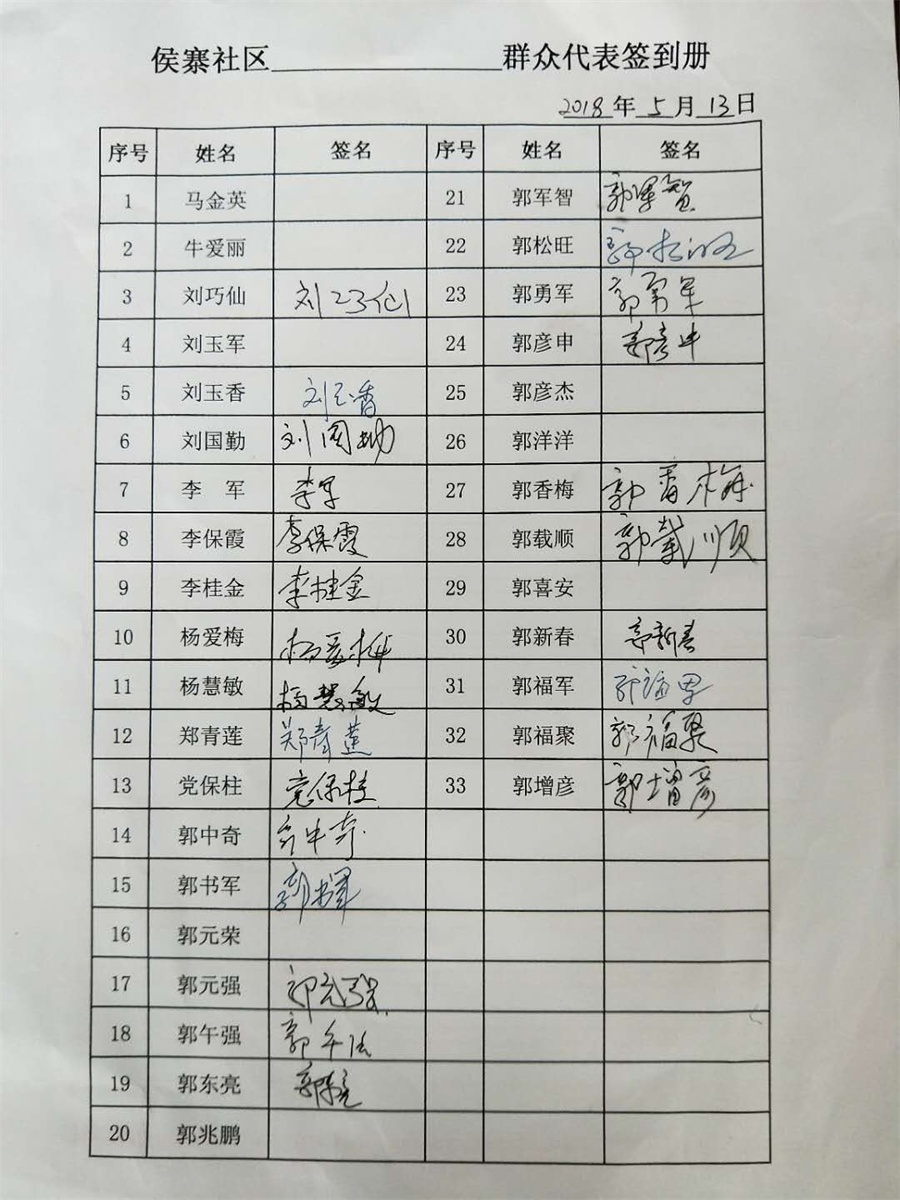 侯寨社区________________群众代表签到册
2018年 5 月 13 日
序号 姓名 签名 序号 姓名 签名
1 马金英 21 郭军智 郭军智
2 牛爱丽 22 郭松旺 郭松旺
3 刘巧仙 刘23仙 23 郭勇军 郭勇军
4 刘玉军 24 郭彦申 郭彦申
5 刘玉香 刘玉香 25 郭彦杰
6 刘国勤 刘国勤 26 郭洋洋
7 李 军 李军 27 郭香梅 郭香梅
8 李保霞 李保霞 28 郭载顺 郭载顺
9 李桂金 李桂金 29 郭喜安
10 杨爱梅 杨爱梅 30 郭新春 郭新春
11 杨慧敏 杨慧敏 31 郭福军 郭福军
12 郑青莲 郑青莲 32 郭福聚 郭福聚
13 党保柱 党保柱 33 郭增彦 郭增彦
14 郭中奇
15 郭书军 郭书军
16 郭元荣
17 郭元强 郭元强
18 郭午强 郭午强
19 郭东亮 郭东亮
20 郭兆鹏